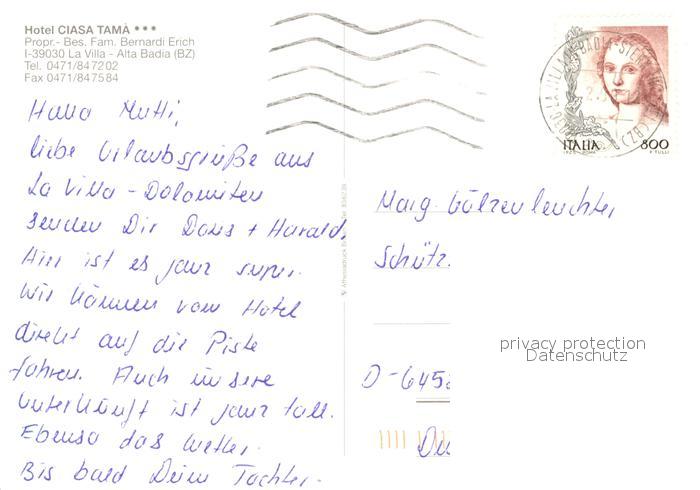 Hotel CIASA TAMÀ ***
Propr.- Bes. Fam. Bernardi Erich
I-39030 La Villa - Alta Badia (BZ)
Tel. 0471/847202
Fax 0471/847584
Hallo Mutti,
liebe Urlaubsgrüße aus
La Villa - Dolomiten
senden Dir Doris + Harald.
Hier ist es ganz super.
Wir können vom Hotel
direkt auf die Piste
fahren. Auch unsere
Unterkunft ist ganz toll.
Ebenso das Wetter.
Bis bald Deine Tochter.
Marg.
Schütz.
D-645
ITALIA 800
privacy protection
Datenschutz